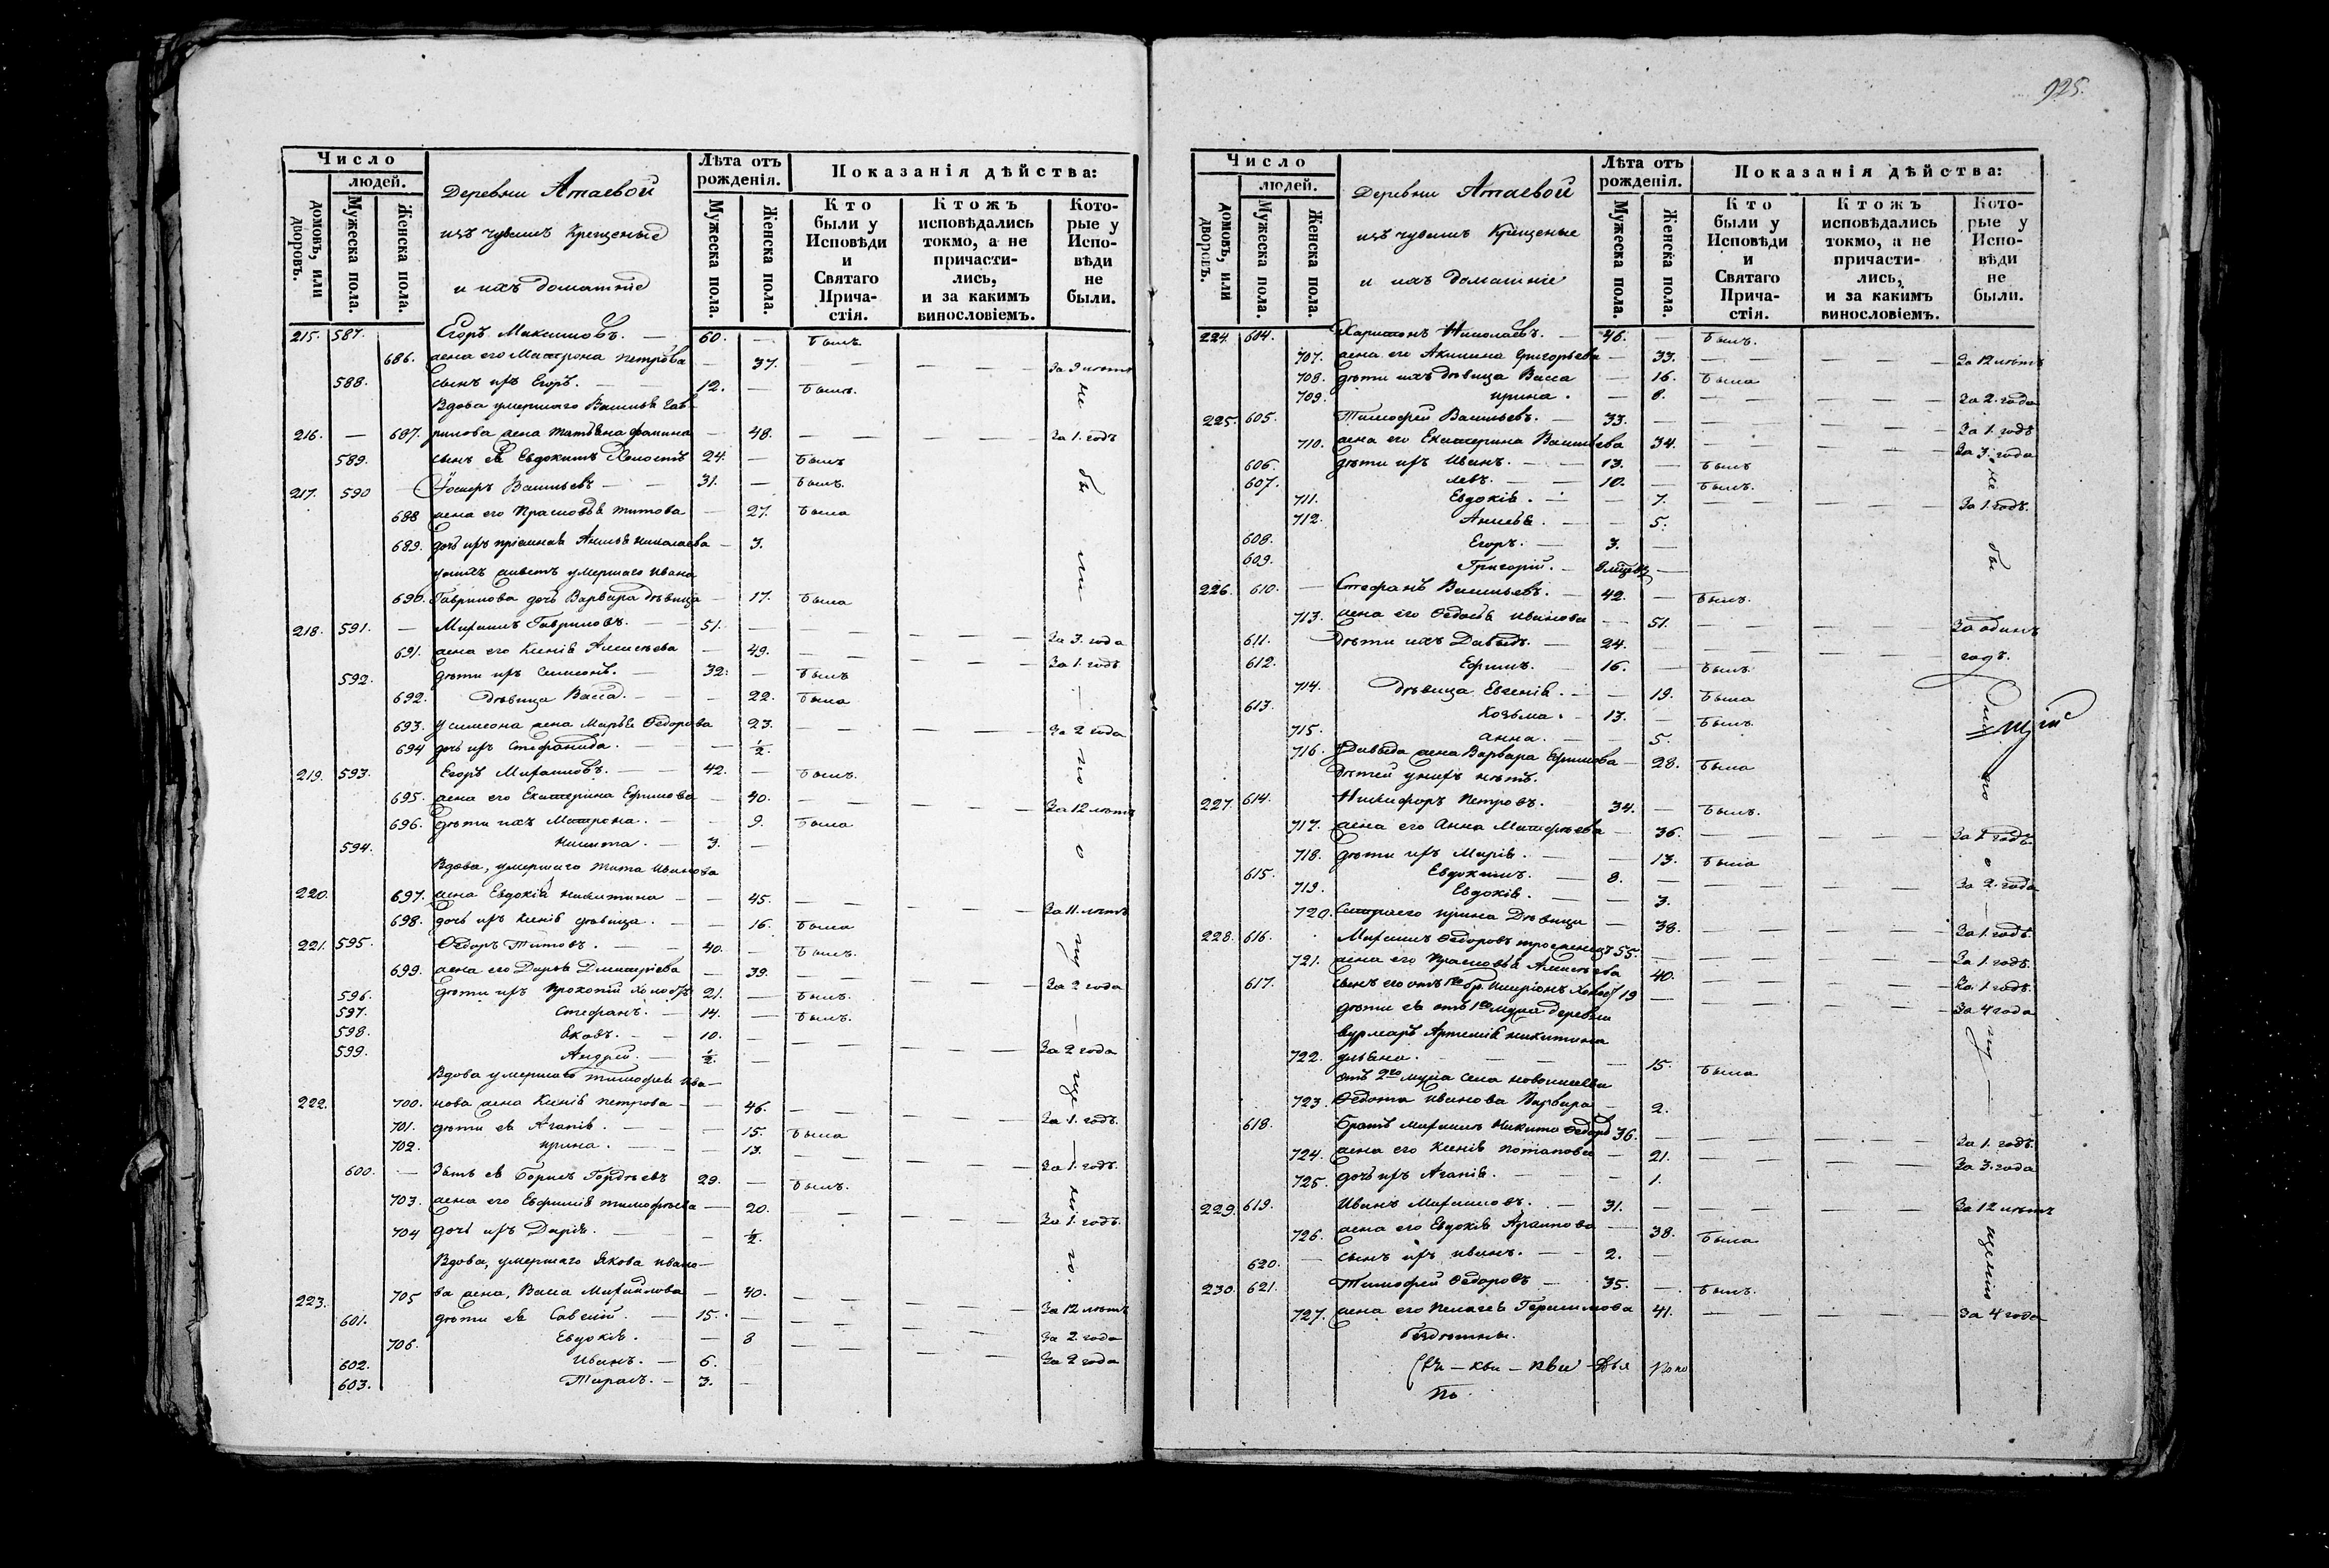 925.
Число
людей.
домовъ, или дворовъ.
Мужеска пола.
Женска пола.
Деревни Атаевой
изъ чувашъ крещеные
и ихъ домашніе
Лѣта отъ рожденія.
Мужеска пола.
Женска пола.
Показанія дѣйства:
Кто были у Исповѣди и Святаго Прича-стія.
Ктожъ исповѣдались токмо, а не причасти-лись, и за какимъ винословіемъ.
Кото-рые у Испо-вѣди не были.
215. 587. Егоръ Максимовъ. — 60. — былъ
686. жена его Матрона Петрова — 37. — — — За 9 лѣтъ
588. сынъ ихъ Егоръ. — 12. — былъ.
Вдова умершаго Василья Гав-
216. — 687. рилова жена Татьяна — 48. — — — За 1. годъ
589. сынъ ея Евдокимъ холостъ 24. — былъ
217. 590 — Ѳосифъ Васильевъ — 31. — былъ.
688 жена его Прасковья Титова — 27. была
689. дочь ихъ пріемная Николаева — 3.
у нихъ живетъ умершаго Ивана
690. Гаврилова дочь Варвара дѣвица — 17. была
218. 591. — Михаилъ Гавриловъ. — 51. — — — За 3. года
691. жена его Ксенія Алексѣева — 49. — — — За 1. годъ
592. дѣти ихъ Симеонъ. — 32. — былъ
692. дѣвица Васса. — — 22. была
693. у Симеона жена Марья Ѳедорова 23. — — — За 2 года
694 дочь ихъ Стефанида. — — ½.
219. 593. Егоръ Михайловъ. — 42. — былъ.
695. жена его Екатерина Ефимова — 40. — — — За 12 лѣтъ
696. дѣти ихъ Матрона. — — 9. была
594. Никита. — 3. —
Вдова, умершаго Тита Иванова
220. 697. жена Евдокія Никитина — 45. — — — За 11. лѣтъ
698. дочь ихъ Ксенія дѣвица. — — 16. была
221. 595. Ѳедоръ Титовъ. — 40. — былъ.
699. жена его Дарья Дмитріева — 39. — — — За 2 года
596. дѣти ихъ Прокопій 21. — былъ.
597. Стефанъ. — 14. — былъ.
598. Яковъ. — 10. —
599. Андрей. — ½. — — — За 2 года
Вдова умершаго Тимофея Ива-
222. 700. нова жена Ксенія Петрова — — 46. — — — За 1. годъ.
701. дѣти ея Агапія. — — 15. была
702. Ирина. — — 13. — — — За 1. годъ.
600. — Зять ея Борисъ Гордѣевъ 29. — былъ.
703. жена его Евфимія Тимофѣева — 20. — — — За 1. годъ.
704 дочь ихъ Дарія. — — ½.
Вдова, умершаго Якова Ивано-
223. 705 ва жена, Васса Михайлова — 40. — — — За 12 лѣтъ
601. дѣти ея Савелій. — 15. — — — За 2. года
706. Евдокія. — — 8 — — — За 2 года
602. Иванъ. — 6.
603. Тарасъ. — 3. —
Число
людей.
домовъ, или дворовъ.
Мужеска пола.
Женска пола.
Деревни Атаевой
изъ чувашъ крещеные
и ихъ домашніе
Лѣта отъ рожденія.
Мужеска пола.
Женска пола.
Показанія дѣйства:
Кто были у Исповѣди и Святаго Прича-стія.
Ктожъ исповѣдались токмо, а не причасти-лись, и за какимъ винословіемъ.
Кото-рые у Испо-вѣди не были.
224. 604. Харитонъ Николаевъ. — 46. — былъ.
707. жена его Акилина Григорьева — 33. — — — За 12 лѣтъ
708. дѣти ихъ дѣвица Васса — 16. была
709. Ирина. — 8. — — — За 2. года
225. 605. Тимофей Васильевъ. — 33. — — — За 1. годъ
710. жена его Екатерина Васильева 34. — — — За 3. года
606. дѣти ихъ Иванъ. — 13. — былъ
607. Левъ. — 10. — былъ.
711. Евдокія. — — 7. — — — За 1. годъ.
712. — — 5.
608. Егоръ. — 3. —
609. Григорій. — —
226. 610. — Стефанъ Васильевъ. — 42. — былъ.
713. жена его Ѳедосья Иванова — 51. — — — За одинъ годъ.
611. Дѣти ихъ Давыдъ. — 24. —
612. Ефимъ. — 16. — былъ.
714. дѣвица Евгенія. — — 19. была
613. Козьма. — 13. — былъ.
715. Анна. — — 5.
716. у Давыда жена Варвара Ефимова — 28. была
дѣтей у нихъ нѣтъ.
227. 614. Никифоръ Петровъ. 34. — былъ.
717. жена его Анна Матфѣева — 36. — — — За 1 годъ.
718. дѣти ихъ Марія. — — 13. была
615. Евдокимъ. — 8. — — — За 2. года
719. Евдокія. — — 3.
720. Сестра его Ирина дѣвица — 38. — — — За 1. годъ.
228. 616. Михаилъ Ѳедоровъ троеженецъ 55. — — — За 1. годъ.
721. жена его Прасковья Алексѣева 40. — — — За 1 годъ.
617. сынъ его отъ 19 — — — За 4 года
дѣти ея отъ 1го мужа деревни
Артемія Никитина
722. — 15. была
отъ 2го мужа села
723. Ѳедота Иванова Варвара — 2.
618. Братъ Михаилъ Никита Ѳедоровъ 36. — — — За 1. годъ.
724. жена его Ксенія Потапова — 21. — — — За 3. года
725. дочь ихъ Агапія. — — 1.
229. 619. Иванъ Михайловъ. — 31. — — — За 12 лѣтъ
726. жена его Евдокія — 38. была
620. — сынъ ихъ Иванъ. — 2. —
230. 621. Тимофей Ѳедоровъ — 35. — былъ.
727. жена его Пелагея Герасимова 41. — — — За 4 года
бездѣтны.